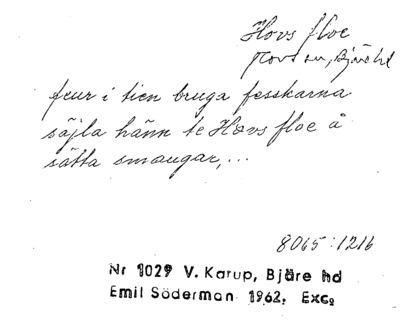 Hovs floe
Hovs sn, Bjäre hd
feur i tien bruga fesskarna
säjla hänn te Hovs floe å
sätta smaugar,...
8065:1216
Nr 1029 V. Karup, Bjäre hd
Emil Söderman 1962. Exc.